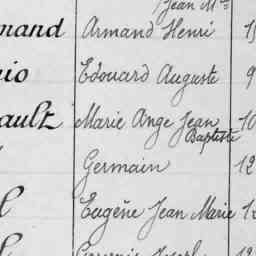 Jean M
mand Armand Henri 15
io Edouard Auguste 9
ault Marie Ange Jean 10
Baptiste
Germain 12
l Eugène Jean Marie 12